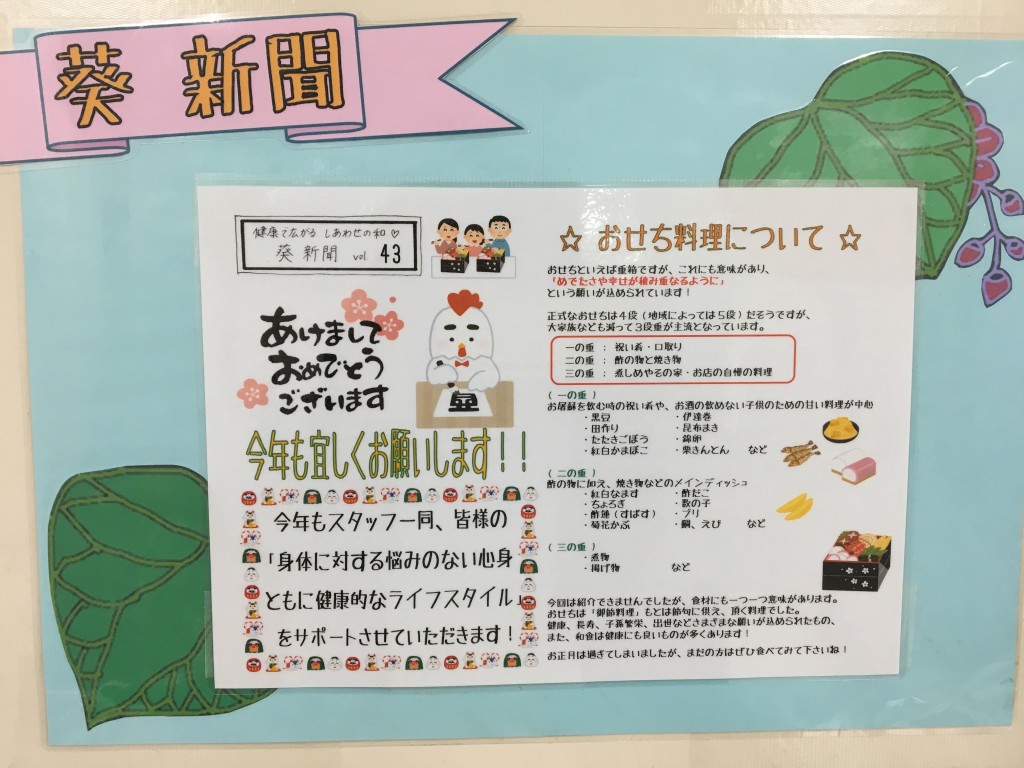 葵 新聞
健康で広がる しあわせの和♡
葵 新聞 vol. 43
あけまして
おめでとう
ございます
今年も宜しくお願いします！！
今年もスタッフ一同、皆様の
「身体に対する悩みのない心身
ともに健康的なライフスタイル」
をサポートさせていただきます！
☆ おせち料理について ☆
おせちといえば重箱ですが、これにも意味があり、
「めでたさや幸せが積み重なるように」
という願いが込められています！
正式なおせちは４段（地域によっては５段）だそうですが、
大家族なども減って３段重が主流となっています。
一の重 ： 祝い肴・口取り
二の重 ： 酢の物と焼き物
三の重 ： 煮しめやその家・お店の自慢の料理
（ 一の重 ）
お屠蘇を飲む時の祝い肴や、お酒の飲めない子供のための甘い料理が中心
・黒豆 ・伊達巻
・田作り ・昆布まき
・たたきごぼう ・錦卵
・紅白かまぼこ ・栗きんとん など
（ 二の重 ）
酢の物に加え、焼き物などのメインディッシュ
・紅白なます ・酢だこ
・ちょろぎ ・数の子
・酢蓮（すばす） ・ブリ
・菊花かぶ ・鯛、えび など
（ 三の重 ）
・煮物
・揚げ物 など
今回は紹介できませんでしたが、食材にも一つ一つ意味があります。
おせちは「御節料理」もとは節句に供え、頂く料理でした。
健康、長寿、子孫繁栄、出世などさまざまな願いが込められたもの、
また、和食は健康にも良いものが多くあります！
お正月は過ぎてしまいましたが、まだの方はぜひ食べてみて下さいね！